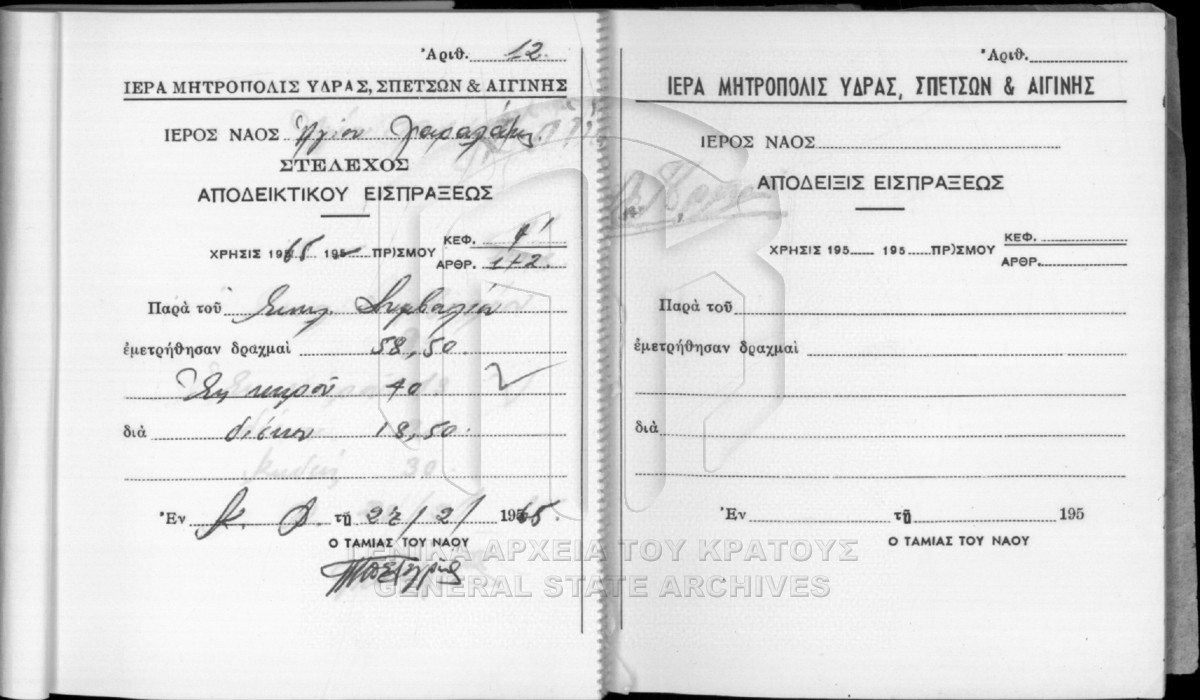 Ἀριθ. 12
ΙΕΡΑ ΜΗΤΡΟΠΟΛΙΣ ΥΔΡΑΣ, ΣΠΕΤΣΩΝ & ΑΙΓΙΝΗΣ
ΙΕΡΟΣ ΝΑΟΣ Ἁγίου
ΣΤΕΛΕΧΟΣ
ΑΠΟΔΕΙΚΤΙΚΟΥ ΕΙΣΠΡΑΞΕΩΣ
ΧΡΗΣΙΣ 1965 195 ΠΡ)ΣΜΟΥ
ΚΕΦ. Α'
ΑΡΘΡ. 1+2
Παρὰ τοῦ
ἐμετρήθησαν δραχμαὶ 58,50
κηροῦ 40
διὰ δίσκου 18,50
30
Ἐν τῇ 27/2/ 1965.
Ο ΤΑΜΙΑΣ ΤΟΥ ΝΑΟΥ
Ἀριθ.
ΙΕΡΑ ΜΗΤΡΟΠΟΛΙΣ ΥΔΡΑΣ, ΣΠΕΤΣΩΝ & ΑΙΓΙΝΗΣ
ΙΕΡΟΣ ΝΑΟΣ
ΑΠΟΔΕΙΞΙΣ ΕΙΣΠΡΑΞΕΩΣ
ΧΡΗΣΙΣ 195 195 ΠΡ)ΣΜΟΥ
ΚΕΦ.
ΑΡΘΡ.
Παρὰ τοῦ
ἐμετρήθησαν δραχμαὶ
διὰ
Ἐν τῇ 195
Ο ΤΑΜΙΑΣ ΤΟΥ ΝΑΟΥ
ΓΕΝΙΚΑ ΑΡΧΕΙΑ ΤΟΥ ΚΡΑΤΟΥΣ
GENERAL STATE ARCHIVES